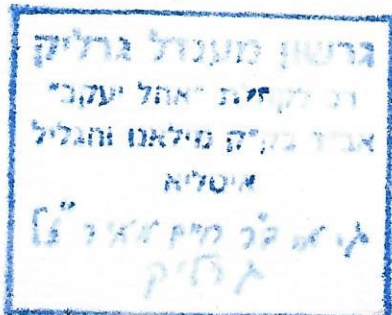 גרשון מענדל גרליק
רב לקהלת "אהל יעקב"
אב"ד בק"ק מילאנו והגליל
איטליא
גרליק